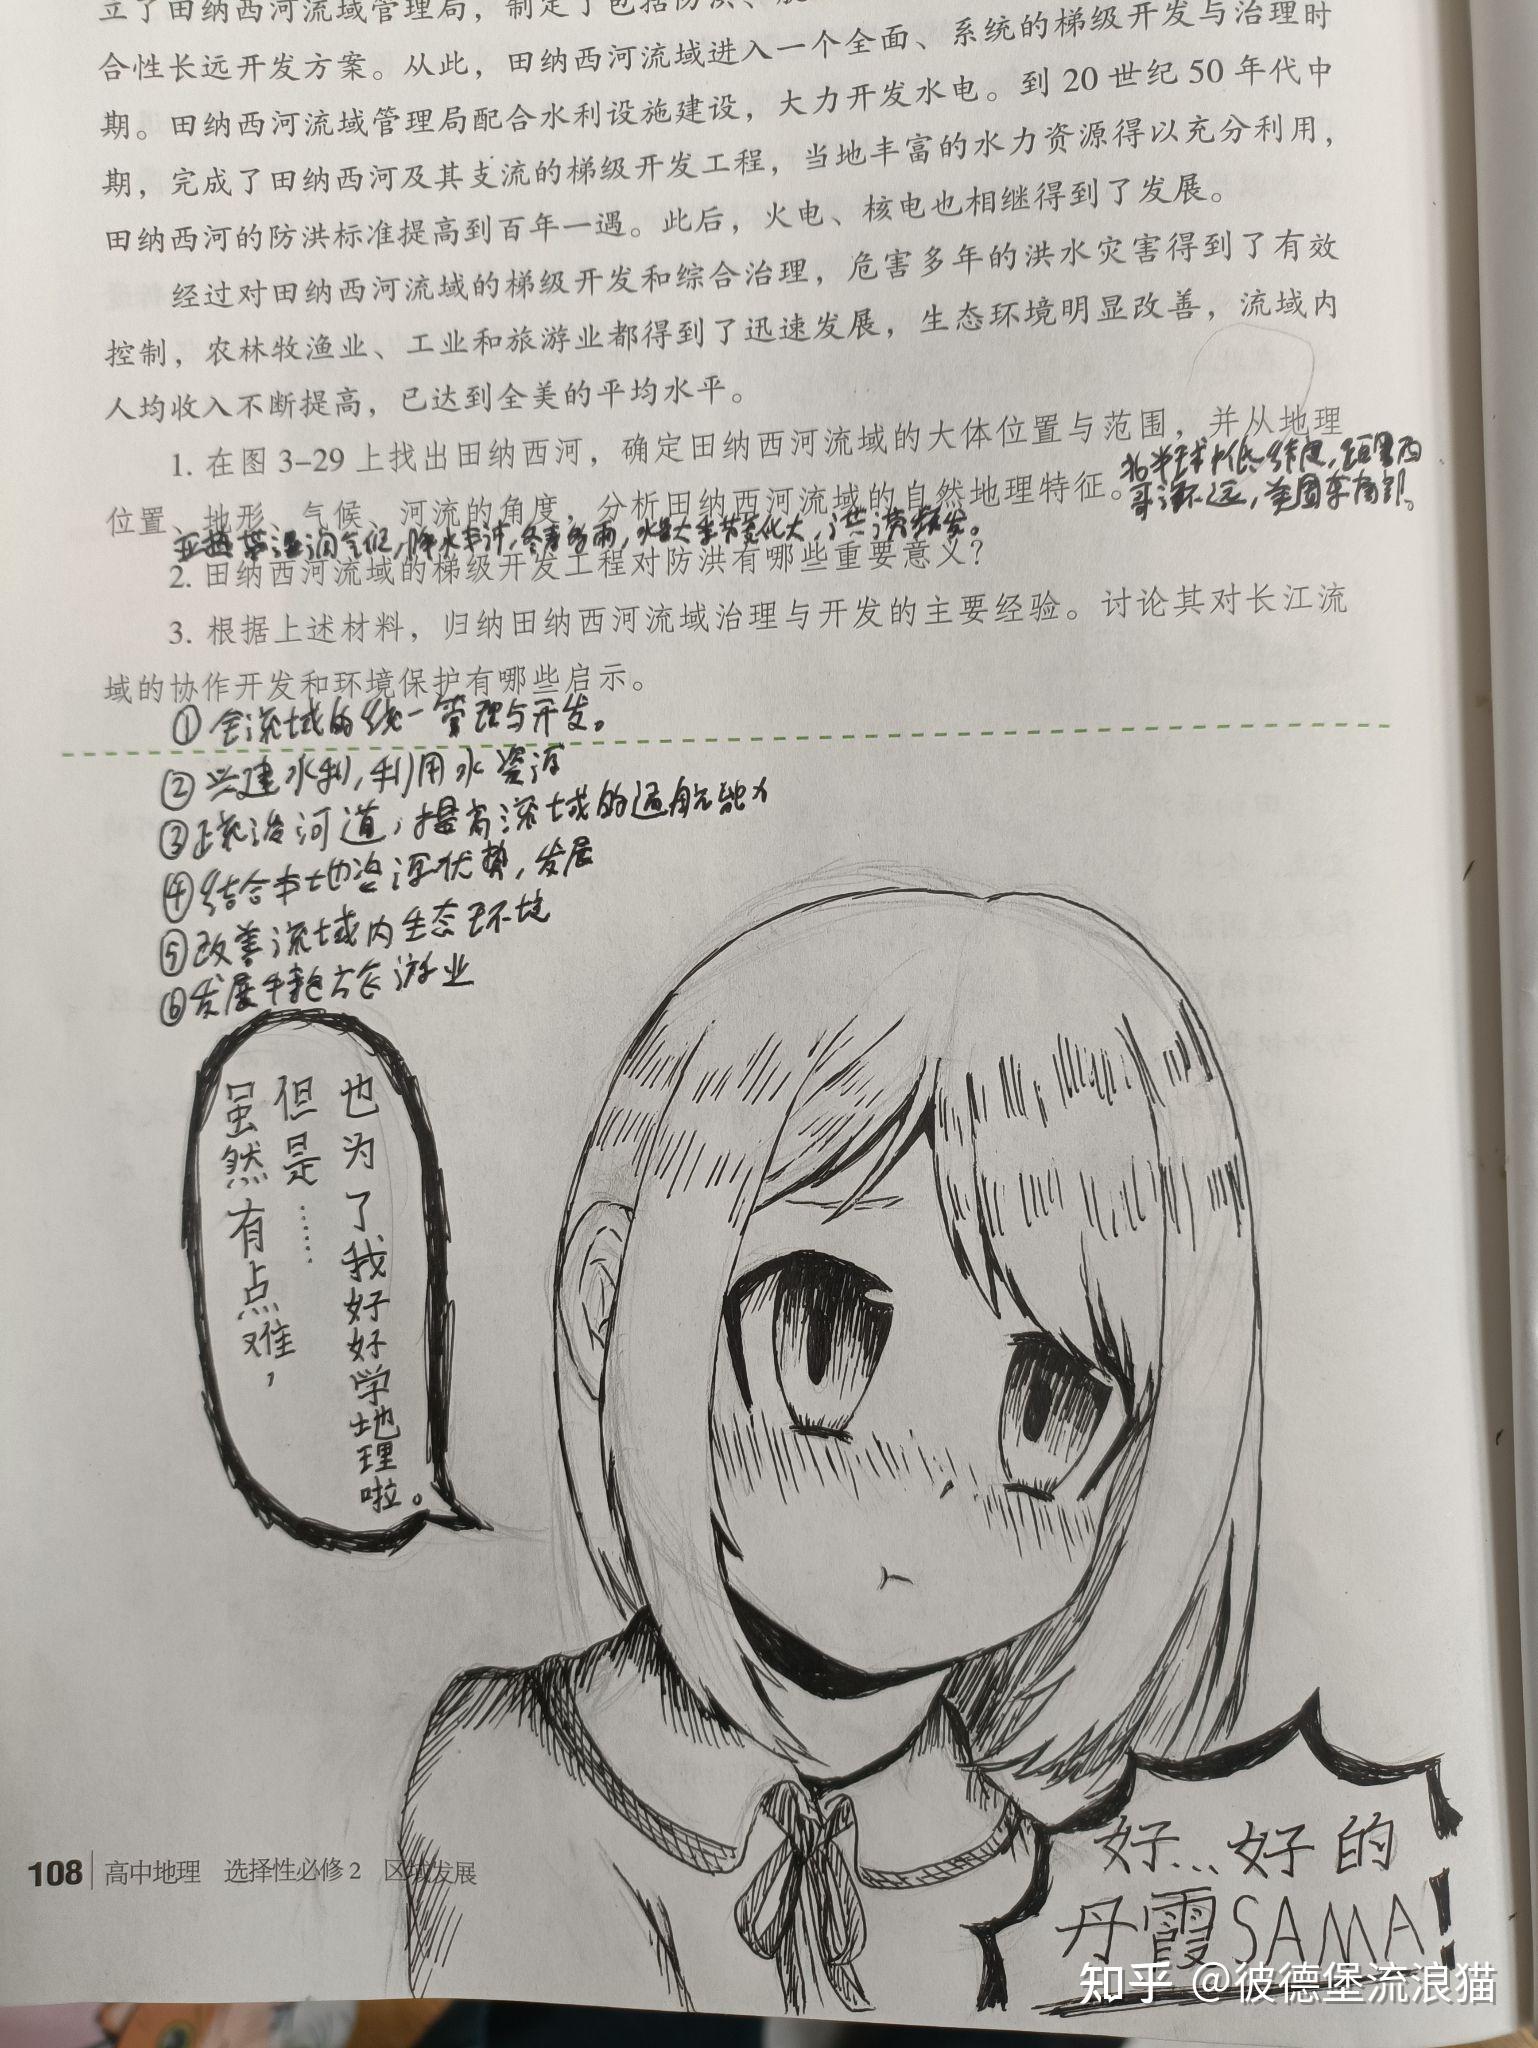 立了田纳西河流域管理局，制定了包括防洪、
合性长远开发方案。从此，田纳西河流域进入一个全面、系统的梯级开发与治理时
期。田纳西河流域管理局配合水利设施建设，大力开发水电。到 20 世纪 50 年代中
期，完成了田纳西河及其支流的梯级开发工程，当地丰富的水力资源得以充分利用，
田纳西河的防洪标准提高到百年一遇。此后，火电、核电也相继得到了发展。
经过对田纳西河流域的梯级开发和综合治理，危害多年的洪水灾害得到了有效
控制，农林牧渔业、工业和旅游业都得到了迅速发展，生态环境明显改善，流域内
人均收入不断提高，已达到全美的平均水平。
1. 在图 3-29 上找出田纳西河，确定田纳西河流域的大体位置与范围，并从地理
位置、地形、气候、河流的角度，分析田纳西河流域的自然地理特征。
北半球中低纬度，距墨西
哥湾不远，美国东南部。
亚热带湿润气候，降水丰沛，冬春多雨，水量大季节变化大，洪涝频发。
2. 田纳西河流域的梯级开发工程对防洪有哪些重要意义？
3. 根据上述材料，归纳田纳西河流域治理与开发的主要经验。讨论其对长江流
域的协作开发和环境保护有哪些启示。
①全流域的统一管理与开发。
②兴建水利，利用水资源
③整治河道，提高流域的通航能力
④结合本地资源优势，发展
⑤改善流域内生态环境
⑥发展特色旅游业
虽然有点难，
但是……
也为了我好好学地理啦。
好…好的
丹霞SAMA！
108 高中地理 选择性必修 2 区域发展
知乎 @彼德堡流浪猫